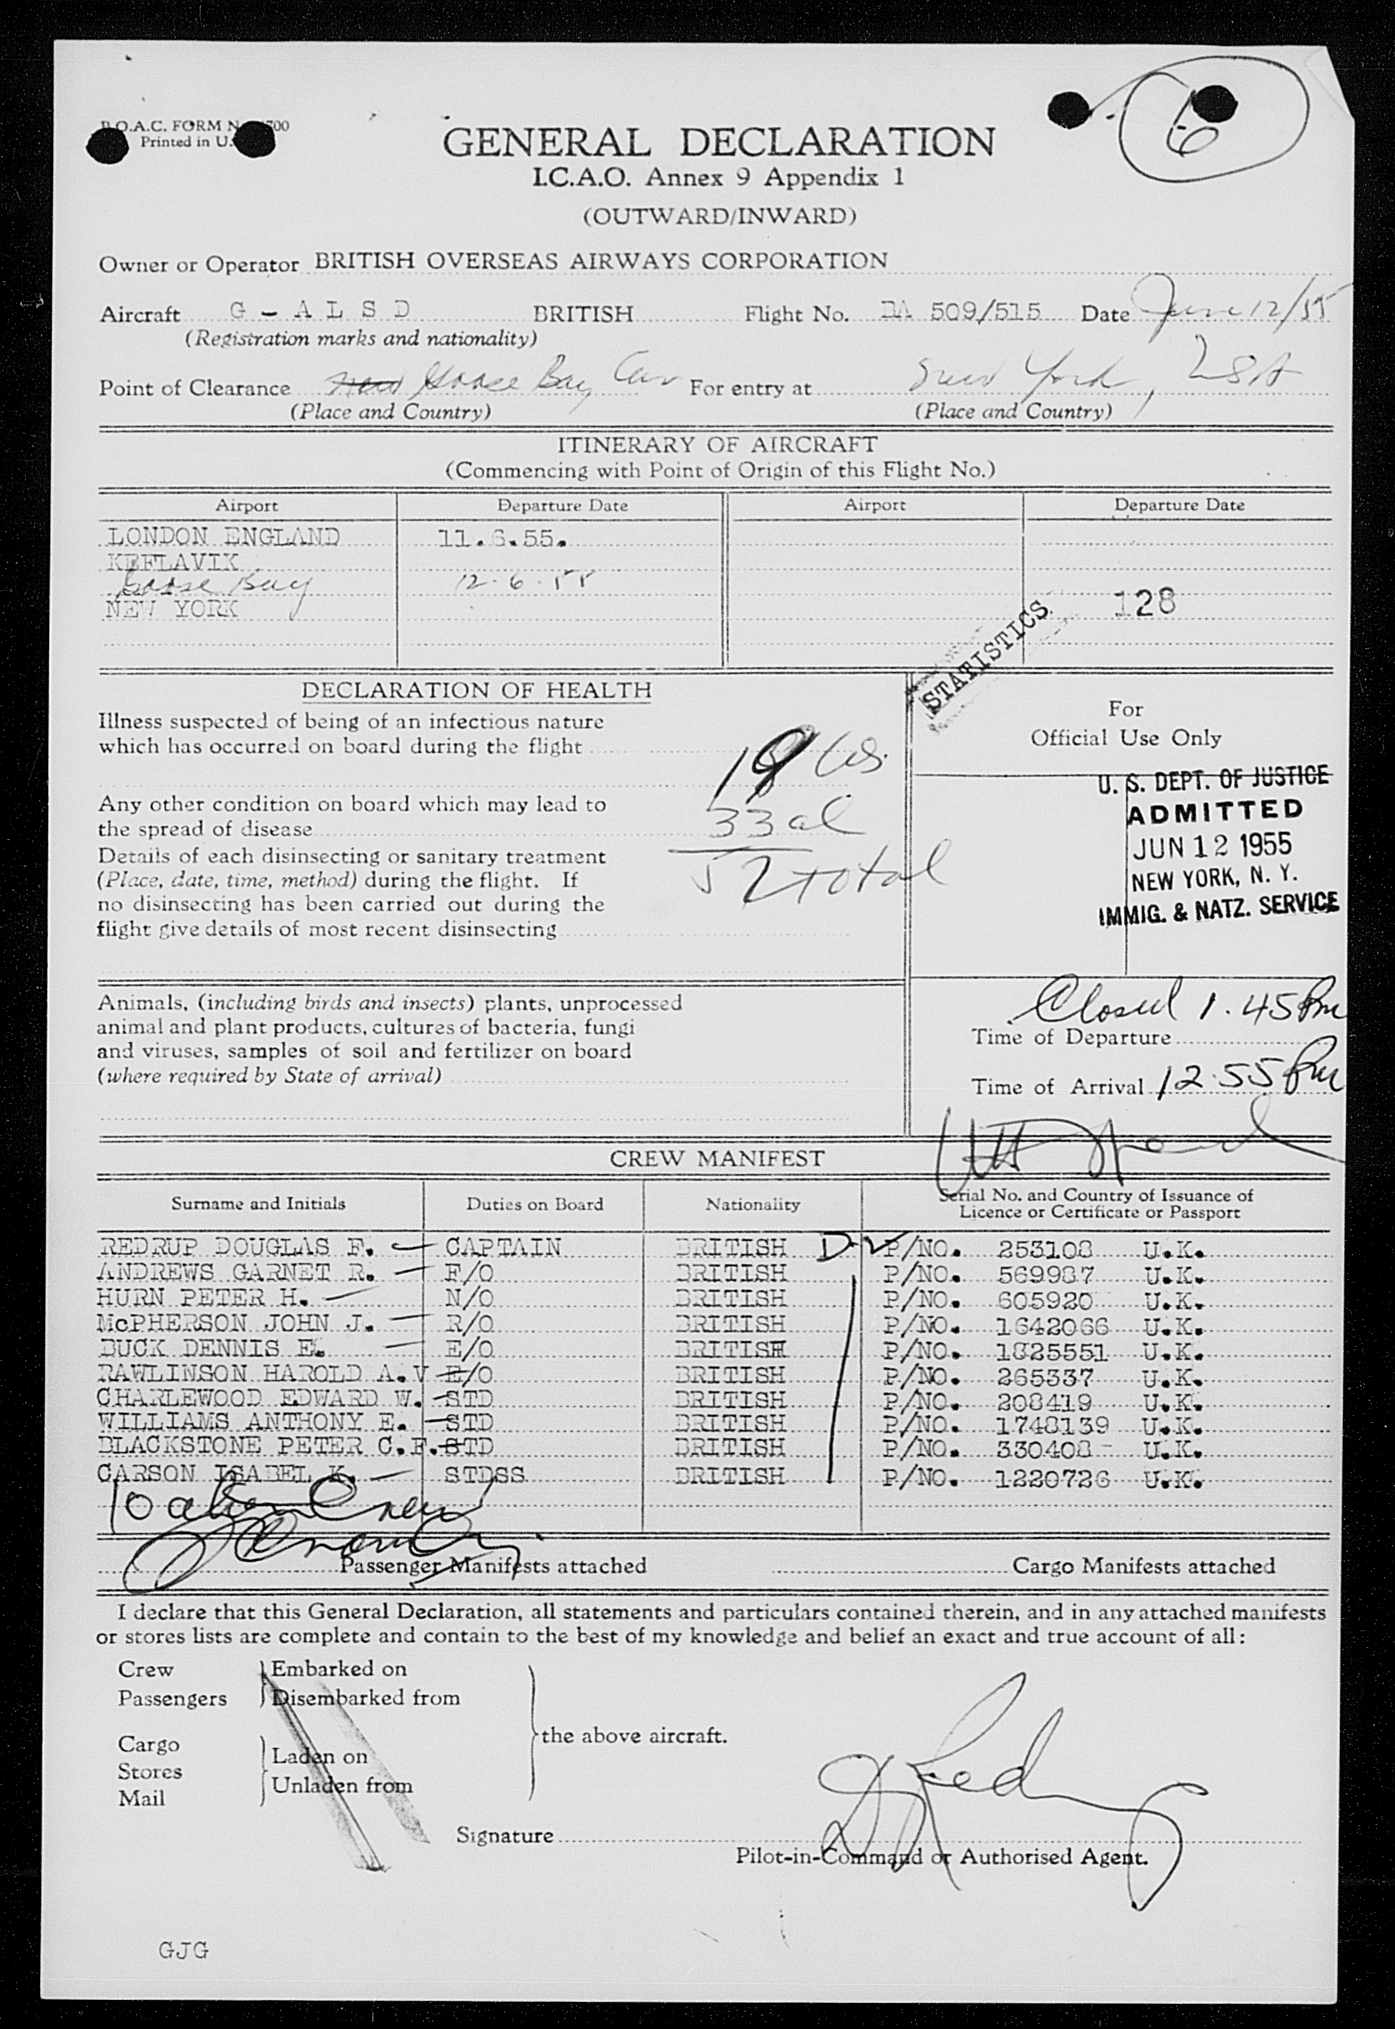 B.O.A.C. FORM
Printed in U.
6
GENERAL DECLARATION
I.C.A.O. Annex 9 Appendix 1
(OUTWARD/INWARD)
Owner or Operator BRITISH OVERSEAS AIRWAYS CORPORATION
Aircraft G - A L S D BRITISH Flight No. BA 509/515 Date June 12/55
(Registration marks and nationality)
Point of Clearance Goose Bay Can For entry at New York, USA
(Place and Country) (Place and Country)
ITINERARY OF AIRCRAFT
(Commencing with Point of Origin of this Flight No.)
Airport Departure Date Airport Departure Date
LONDON ENGLAND 11.6.55.
KEFLAVIK
Goose Bay 12.6.55
NEW YORK
128
STATISTICS
DECLARATION OF HEALTH
Illness suspected of being of an infectious nature
which has occurred on board during the flight
Any other condition on board which may lead to
the spread of disease
Details of each disinsecting or sanitary treatment
(Place, date, time, method) during the flight. If
no disinsecting has been carried out during the
flight give details of most recent disinsecting
19 US.
33 al
52 total
For
Official Use Only
U. S. DEPT. OF JUSTICE
ADMITTED
JUN 12 1955
NEW YORK, N. Y.
IMMIG. & NATZ. SERVICE
Animals, (including birds and insects) plants, unprocessed
animal and plant products, cultures of bacteria, fungi
and viruses, samples of soil and fertilizer on board
(where required by State of arrival)
Closed 1.45 Pm
Time of Departure
Time of Arrival 12.55 Pm
CREW MANIFEST
Surname and Initials Duties on Board Nationality Serial No. and Country of Issuance of
Licence or Certificate or Passport
REDRUP DOUGLAS F. CAPTAIN BRITISH P/NO. 253108 U.K.
ANDREWS GARNET R. F/O BRITISH P/NO. 569987 U.K.
HURN PETER H. N/O BRITISH P/NO. 605920 U.K.
McPHERSON JOHN J. R/O BRITISH P/NO. 1642066 U.K.
BUCK DENNIS E. E/O BRITISH P/NO. 1825551 U.K.
RAWLINSON HAROLD A.V E/O BRITISH P/NO. 265337 U.K.
CHARLEWOOD EDWARD W. STD BRITISH P/NO. 208419 U.K.
WILLIAMS ANTHONY E. STD BRITISH P/NO. 1748139 U.K.
BLACKSTONE PETER C.F. STD BRITISH P/NO. 330408 - U.K.
CARSON ISABEL K. STDSS BRITISH P/NO. 1220726 U.K.
10 alien Crew
Passenger Manifests attached Cargo Manifests attached
I declare that this General Declaration, all statements and particulars contained therein, and in any attached manifests
or stores lists are complete and contain to the best of my knowledge and belief an exact and true account of all:
Crew
Passengers
Embarked on
Disembarked from
Cargo
Stores
Mail
Laden on
Unladen from
the above aircraft.
Signature
Pilot-in-Command or Authorised Agent.
GJG